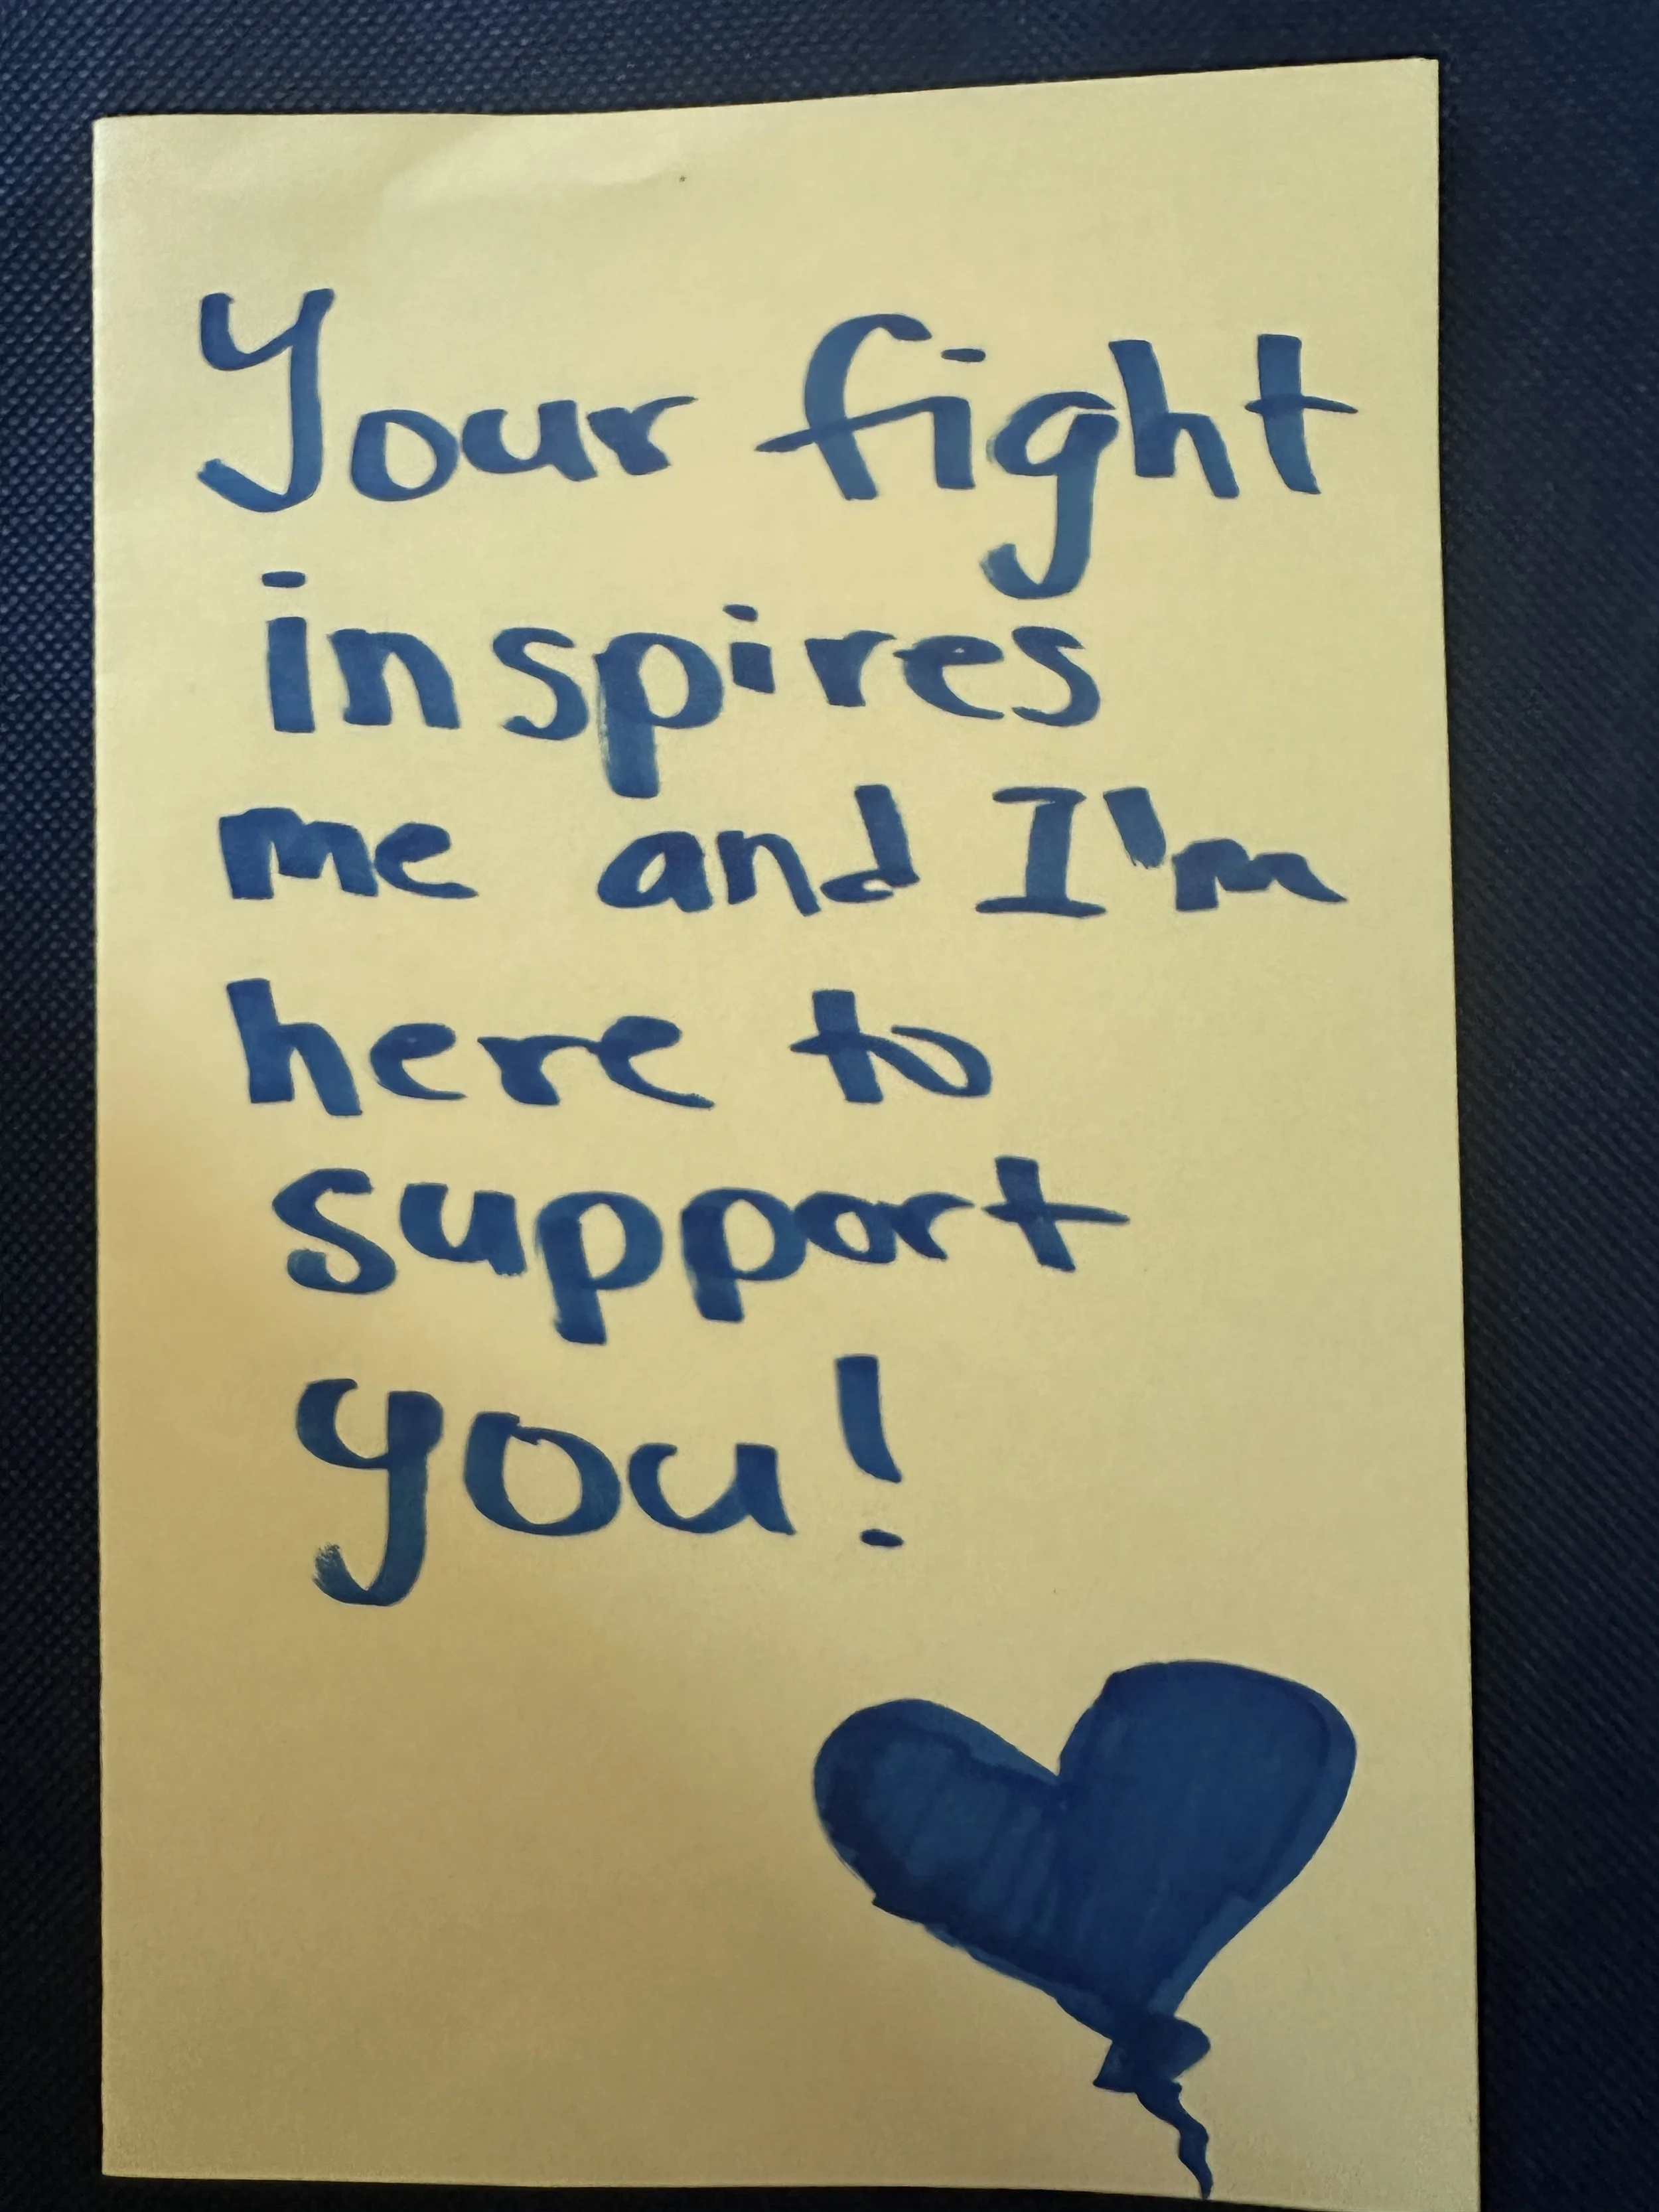 Your fight
inspires
me and I'm
here to
support
you!